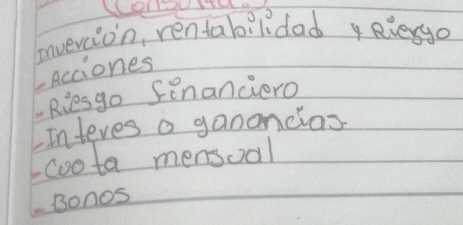 Consulta.
Inverción, rentabilidad y Riesgo
- Acciones
- Riesgo financiero
- Interes o ganancias
- Cuota mensual
- Bonos